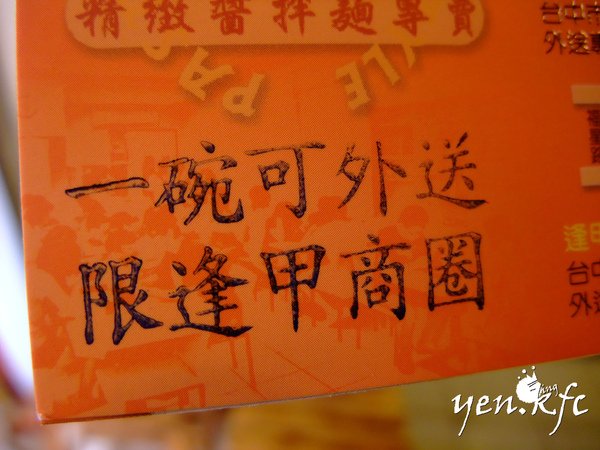 精緻醬拌麵專賣
一碗可外送
限逢甲商圈
台中市
外送專
逢甲
台中
外送
yang
yen.kfc